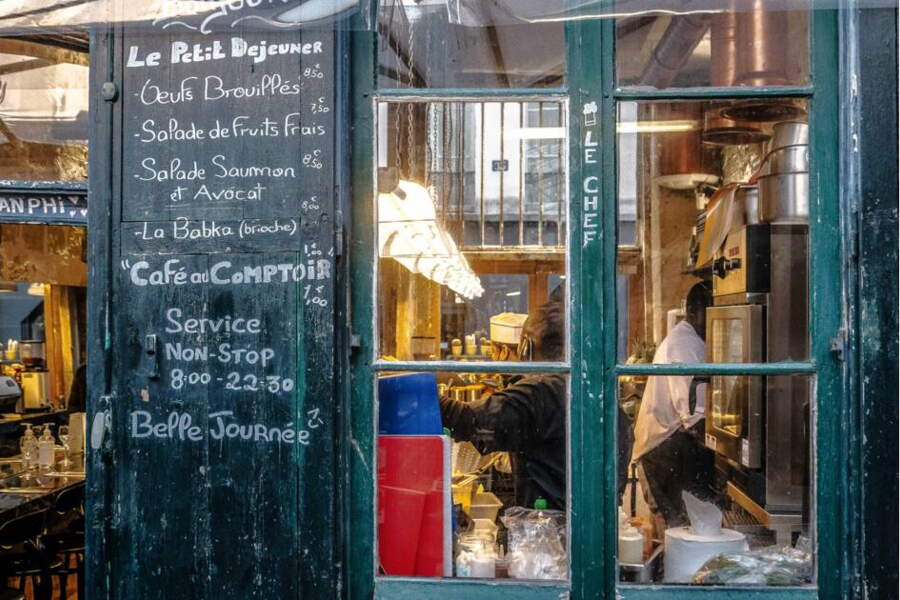 Le Petit Dejeuner
-Oeufs Brouillés 8,50€
-Salade de Fruits Frais 7,50€
-Salade Saumon 8,50€
et Avocat
-La Babka (brioche)
"Café au Comptoir
1,00
Service
Non-Stop
8:00-22:30
Belle Journée
AN PHI
LE CHEF